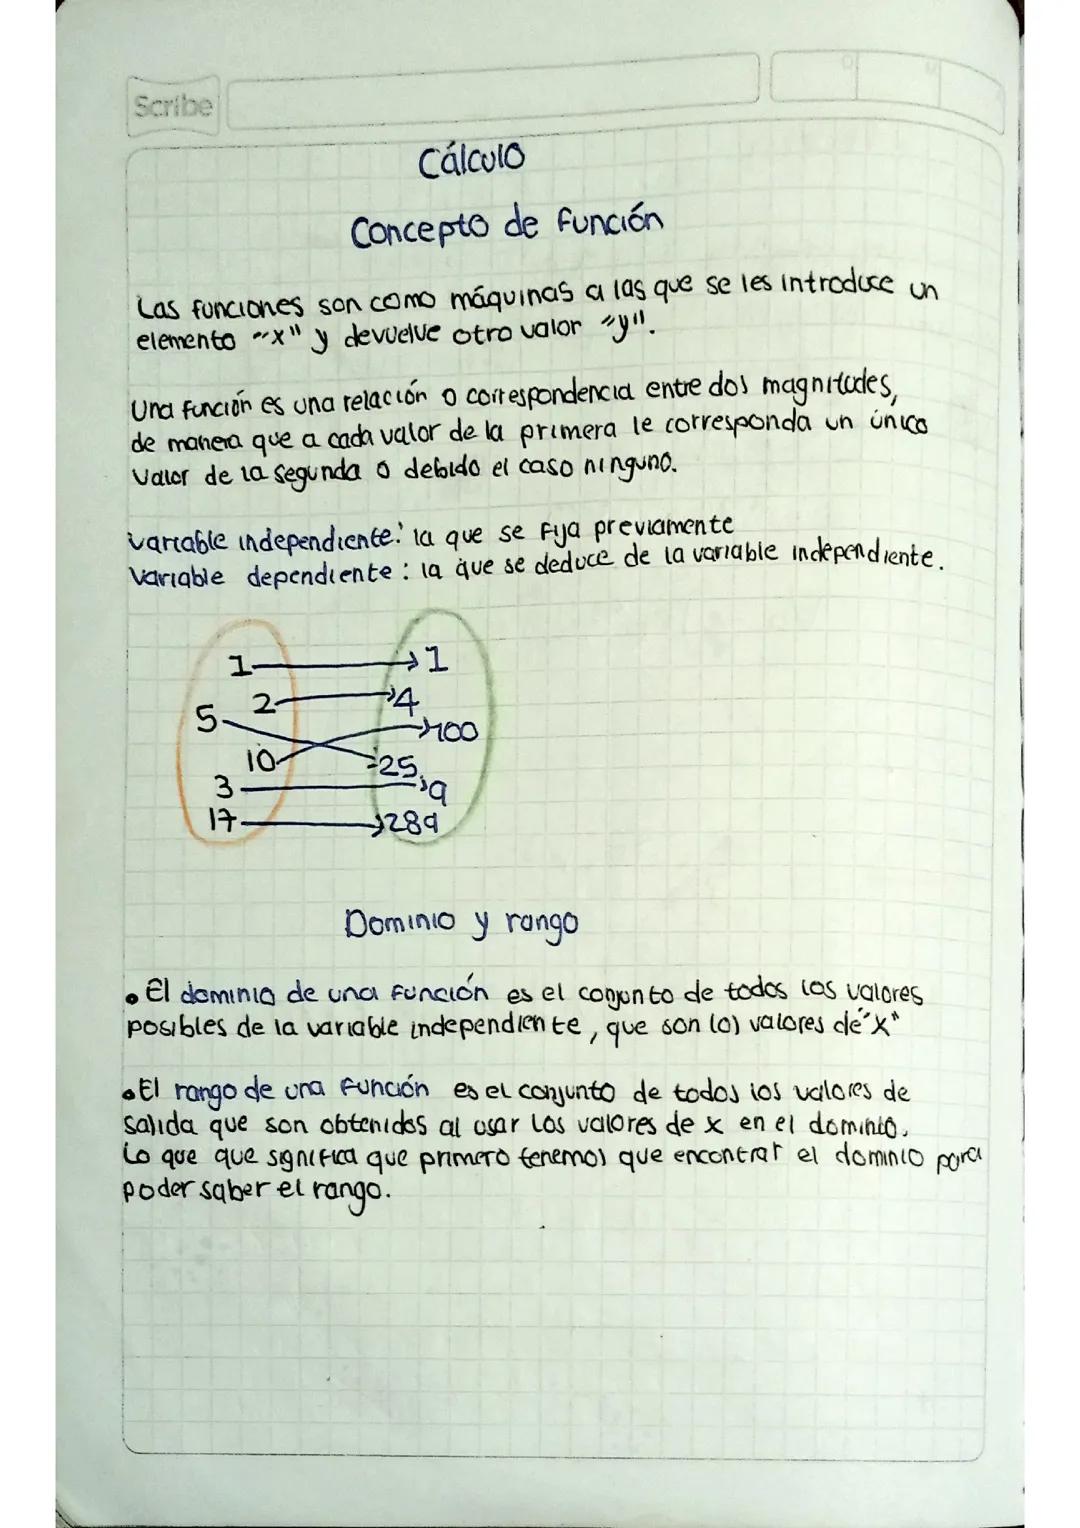 Scribe
Cálculo
Concepto de función
Las funciones son como máquinas a las que se les introduce un
elemento "x" y devuelve otro valor "y".
Una función es una relación o correspondencia entre dos magnitudes,
de manera que a cada valor de la primera le corresponda un único
valor de la segunda o debido el caso ninguno.
variable independiente: la que se fija previamente
Variable dependiente: la que se deduce de la variable independiente.
1 → 1
2 → 4
5 100
10 25
3 → 9
17 → 289
Dominio y rango
• El dominio de una función es el conjunto de todos los valores
posibles de la variable independiente, que son los valores de "x"
• El rango de una función es el conjunto de todos los valores de
salida que son obtenidos al usar los valores de x en el dominio.
Lo que que significa que primero tenemos que encontrar el dominio para
poder saber el rango.